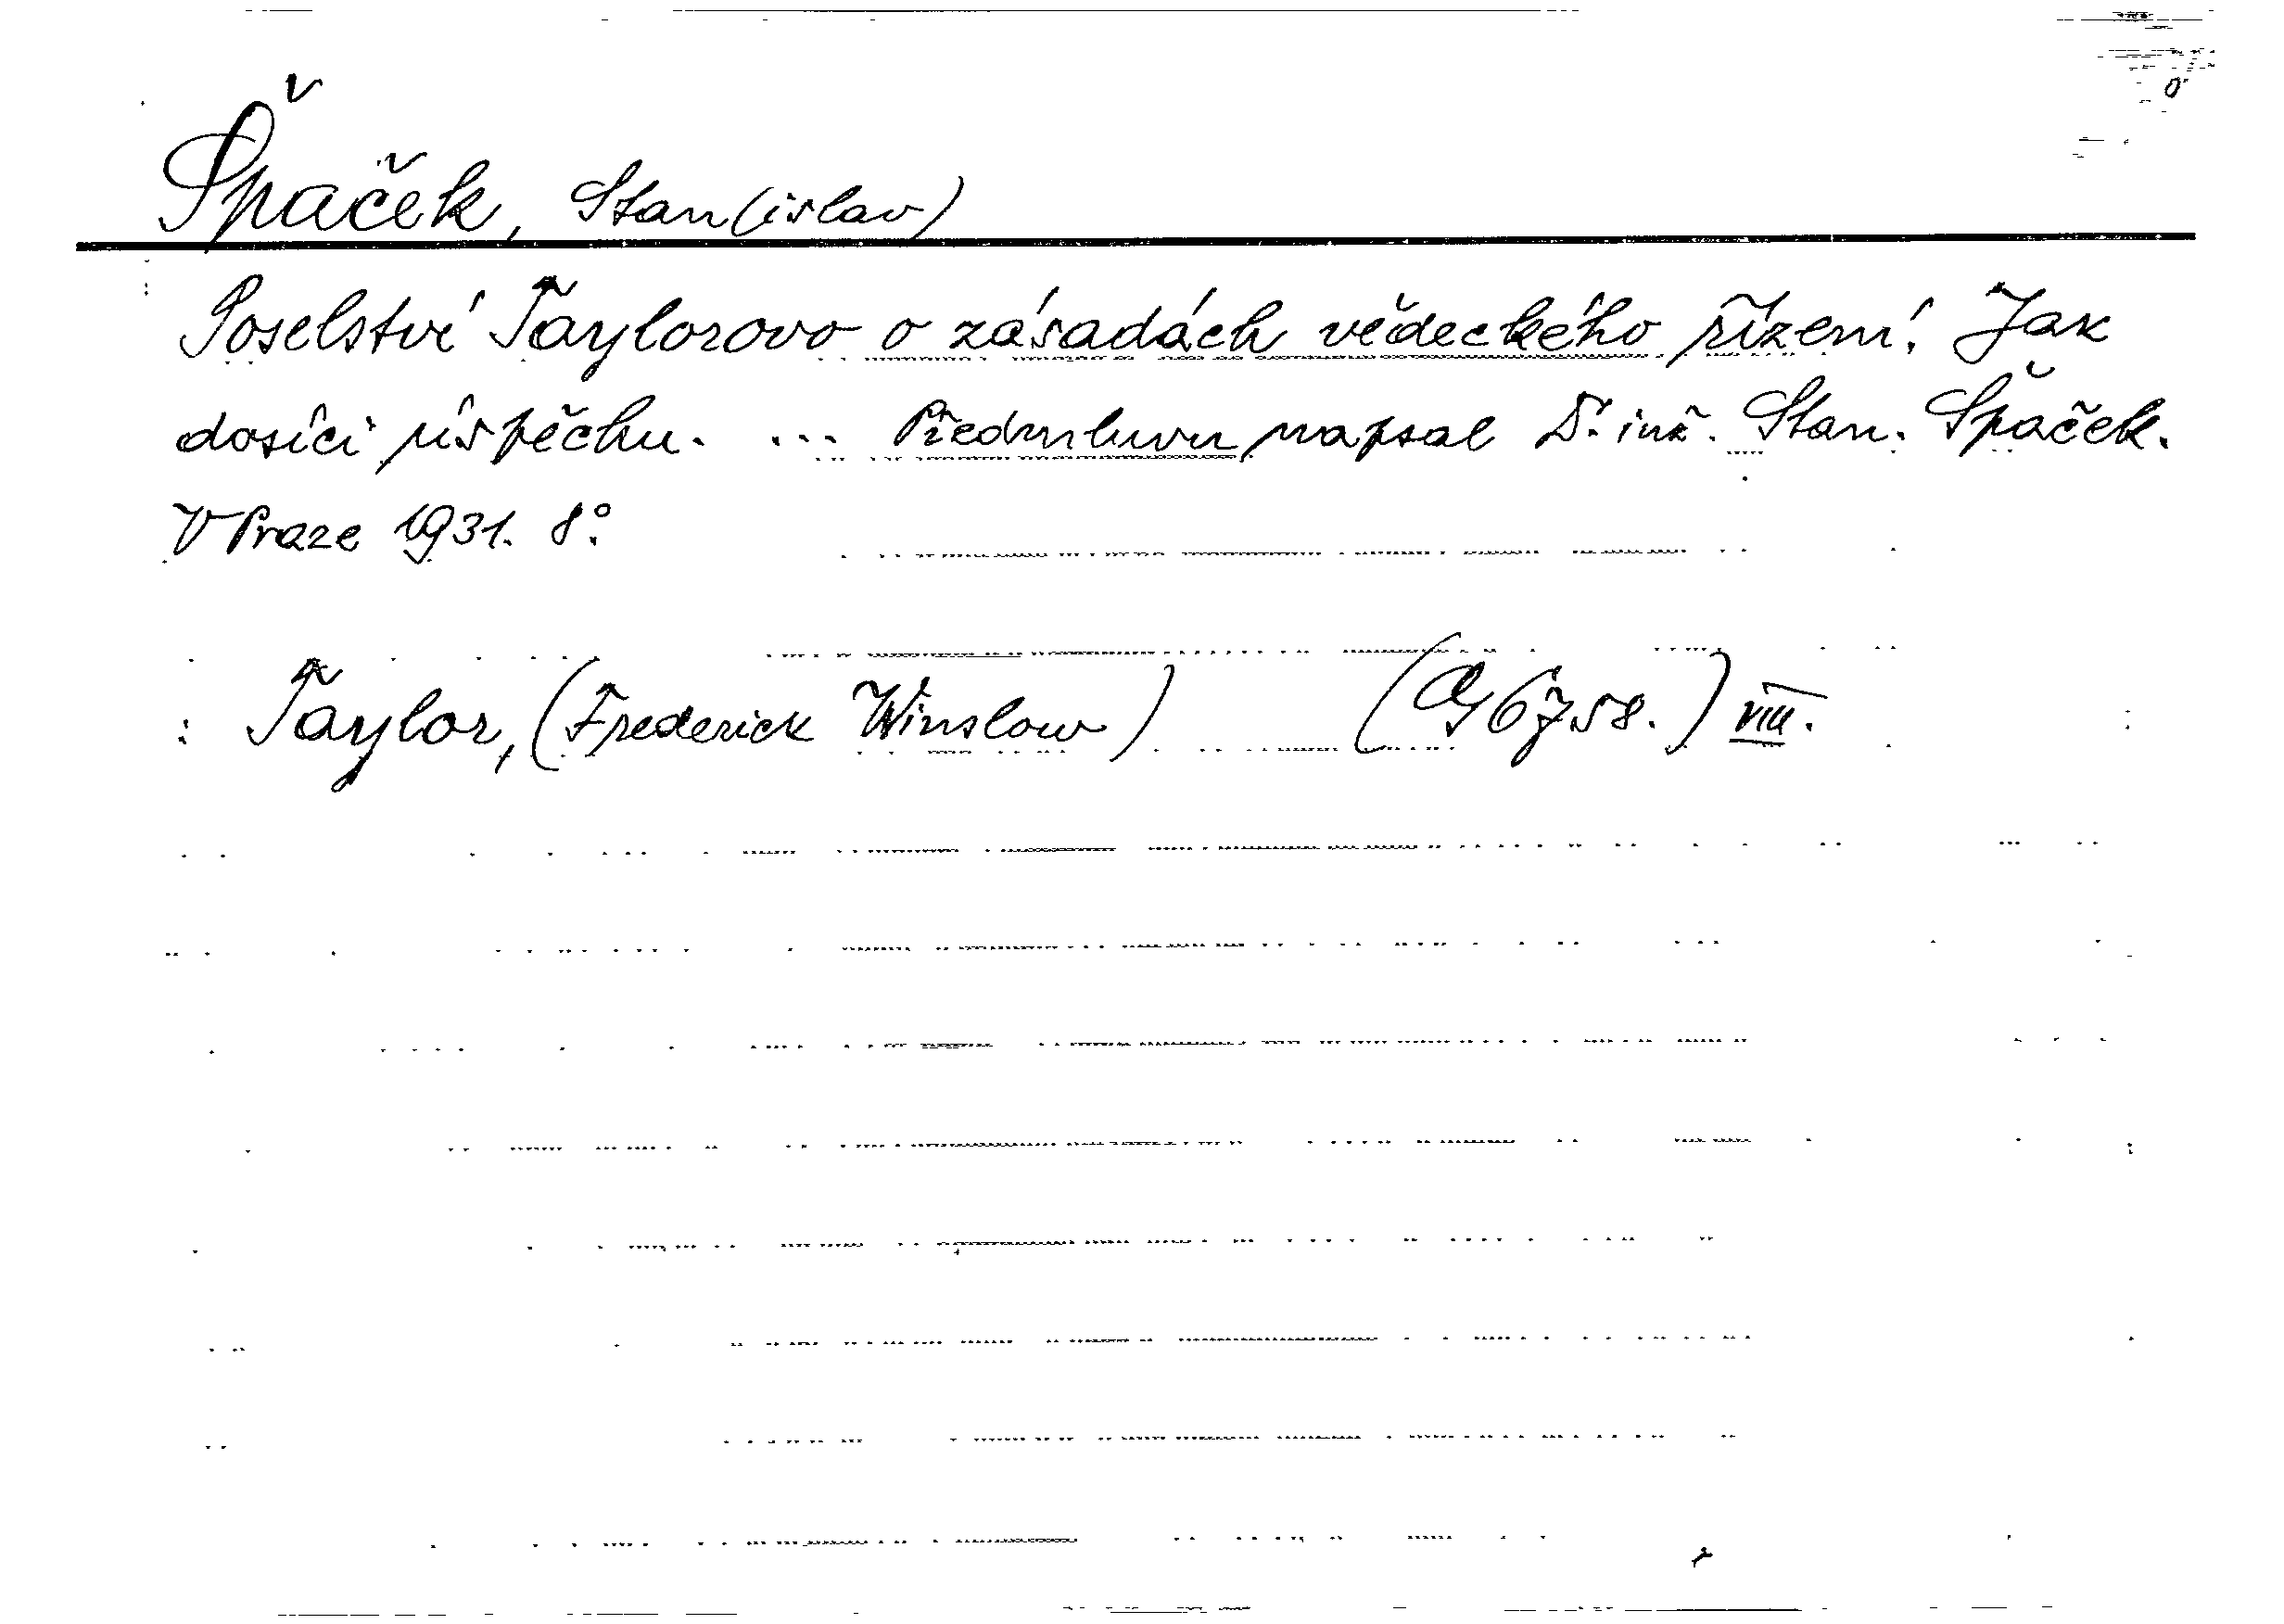 Špaček, Stan(islav)
Poselství Taylorovo o zásadách vědeckého řízení. Jak
dosíci úspěchu. ... Předmluvu napsal Dr. inž. Stan. Špaček.
V Praze 1931. 8°.
: Taylor, (Frederick Winslow) (G 6758.) VIII.